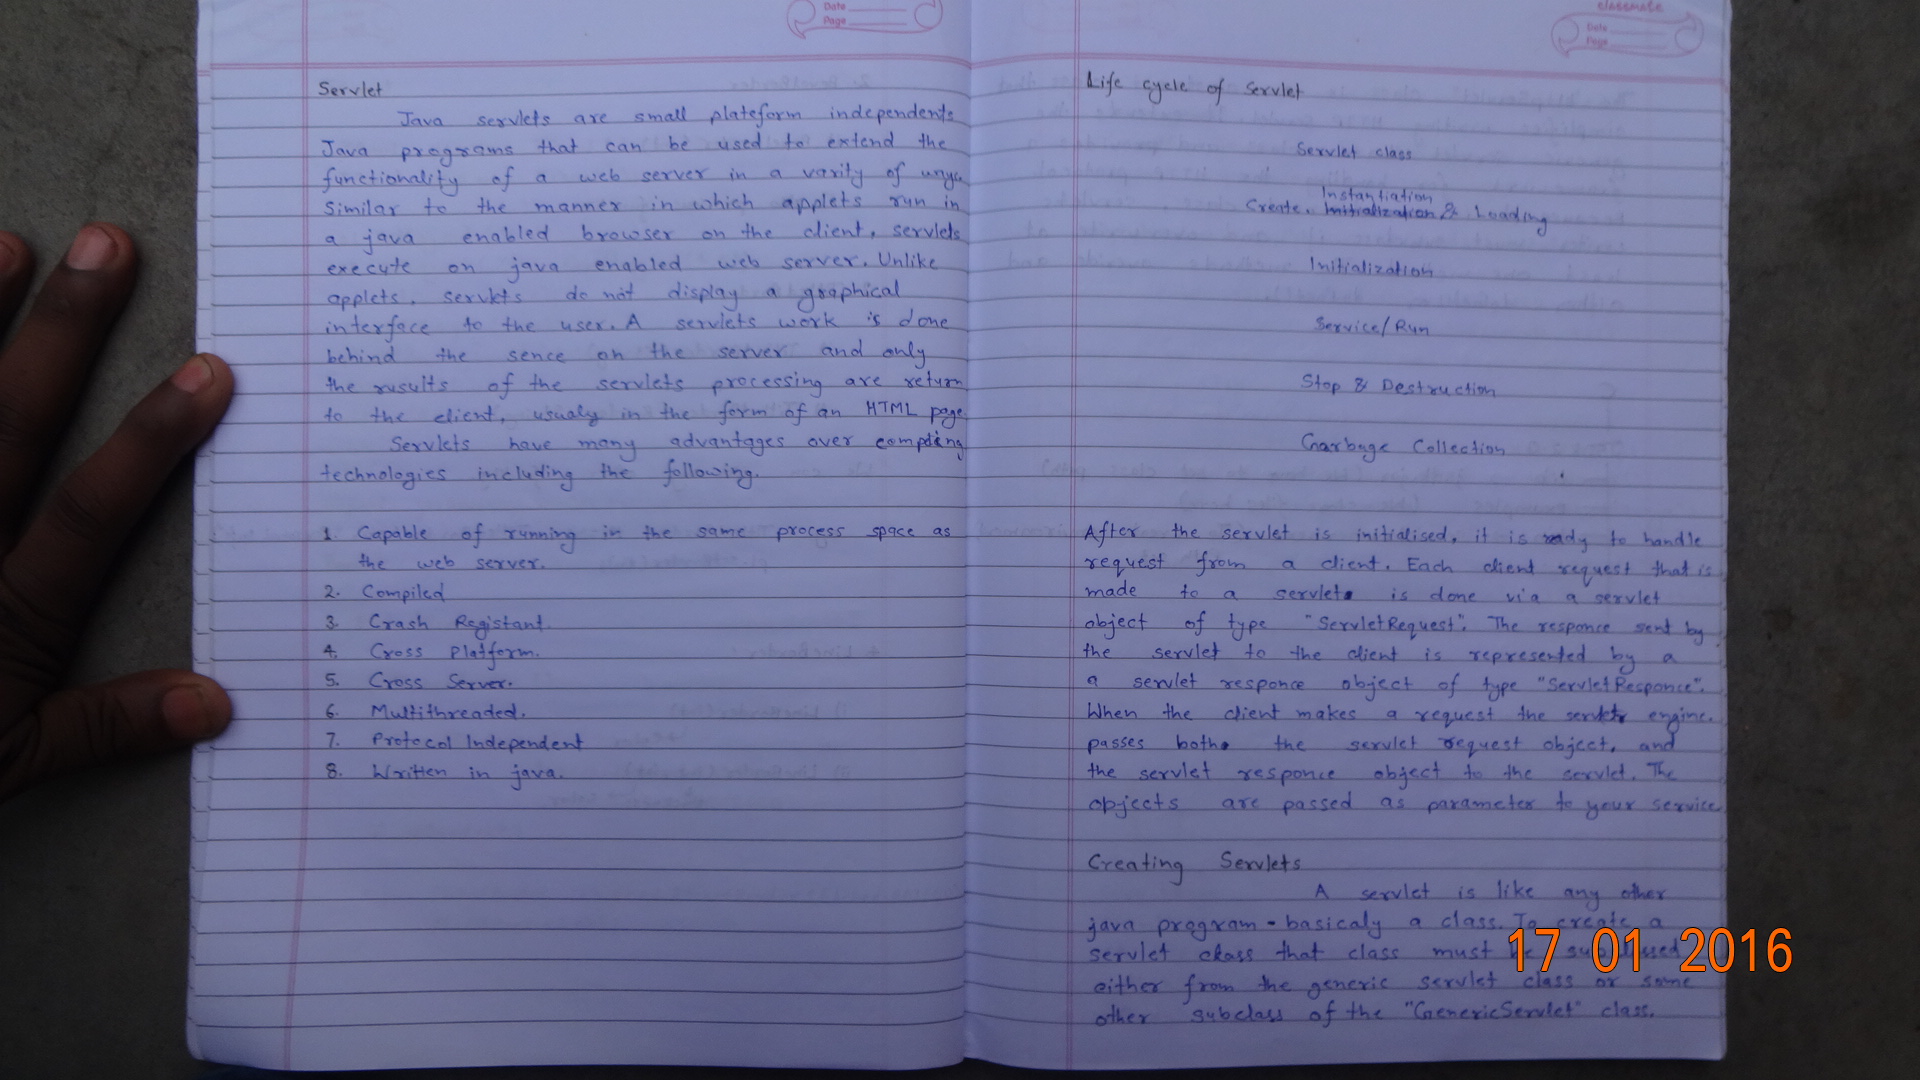 Date
Page
Servlet
Java servlets are small plateform independents
Java programs that can be used to extend the
functionality of a web server in a varity of
Similar to the manner in which applets run in
a java enabled browser on the client, servlets
execute on java enabled web server. Unlike
applets, servlets do not display a graphical
interface to the user. A servlets work is done
behind the sence on the server and only
the results of the servlets processing are return
to the client, usualy in the form of an HTML page
Servlets have many advantages over
technologies including the following.
1. Capable of running in the same process space as
the web server.
2. Compiled
3. Crash Registant.
4. Cross Platform.
5. Cross Server.
6. Multithreaded.
7. Protocol Independent
8. Written in java.
classmate
Date
Page
Life cycle of servlet
Servlet class
Instantiation
Create, Initialization & Loading
Initialization
Service/Run
Stop & Destruction
Garbage Collection
After the servlet is initialised, it is ready to handle
request from a client. Each client request that is
made to a servlet is done via a servlet
object of type "ServletRequest". The responce sent by
the servlet to the client is represented by a
a servlet responce object of type "ServletResponce".
When the client makes a request the servlet engine
passes both the servlet request object, and
the servlet responce object to the servlet. The
objects are passed as parameter to your service
Creating Servlets
A servlet is like any other
java program - basicaly a class. To create a
servlet class that class must be subclassed
either from the generic servlet class or some
other subclass of the "GenericServlet" class.
17 01 2016